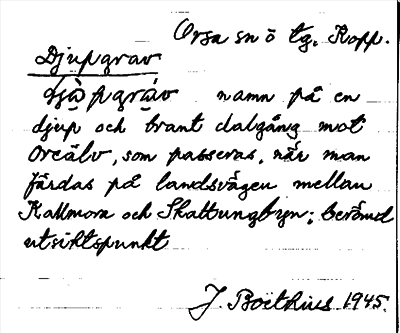 Orsa sn ö tg. Kopp.
Djupgrav
djùpgràv namn på en
djup och brant dalgång mot
Oreälv, som passeras, när man
färdas på landsvägen mellan
Kallmora och Skattungbyn; berömd
utsiktspunkt
J. Boëthius 1945.